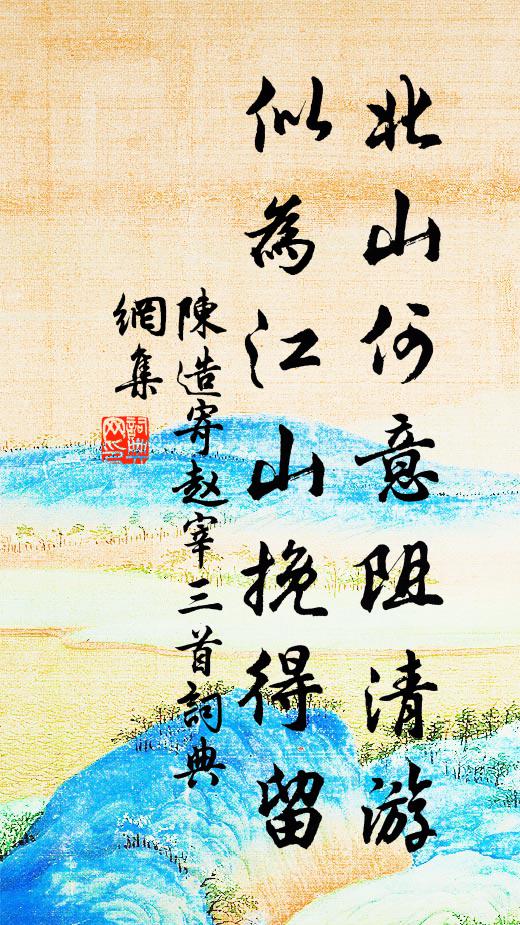 北山何意阻清游
似為江山挽得留
陳造寄赵宰三首詞典
網集
詞典網